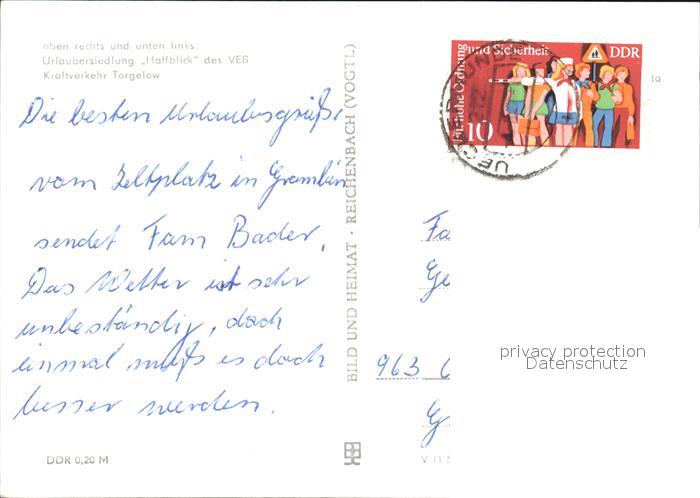 oben rechts und unten links:
Urlaubersiedlung „Haffblick" des VEB
Kraftverkehr Torgelow
Die besten Urlaubsgrüße
vom Zeltplatz in Grambin
sendet Fam Bader.
Das Wetter ist sehr
unbeständig, doch
einmal muß es doch
besser werden.
DDR 0,20 M
BILD UND HEIMAT · REICHENBACH (VOGTL)
Für hohe Ordnung und Sicherheit
DDR
10
Fa
Ge
963 C
G
V 11 5
privacy protection
Datenschutz